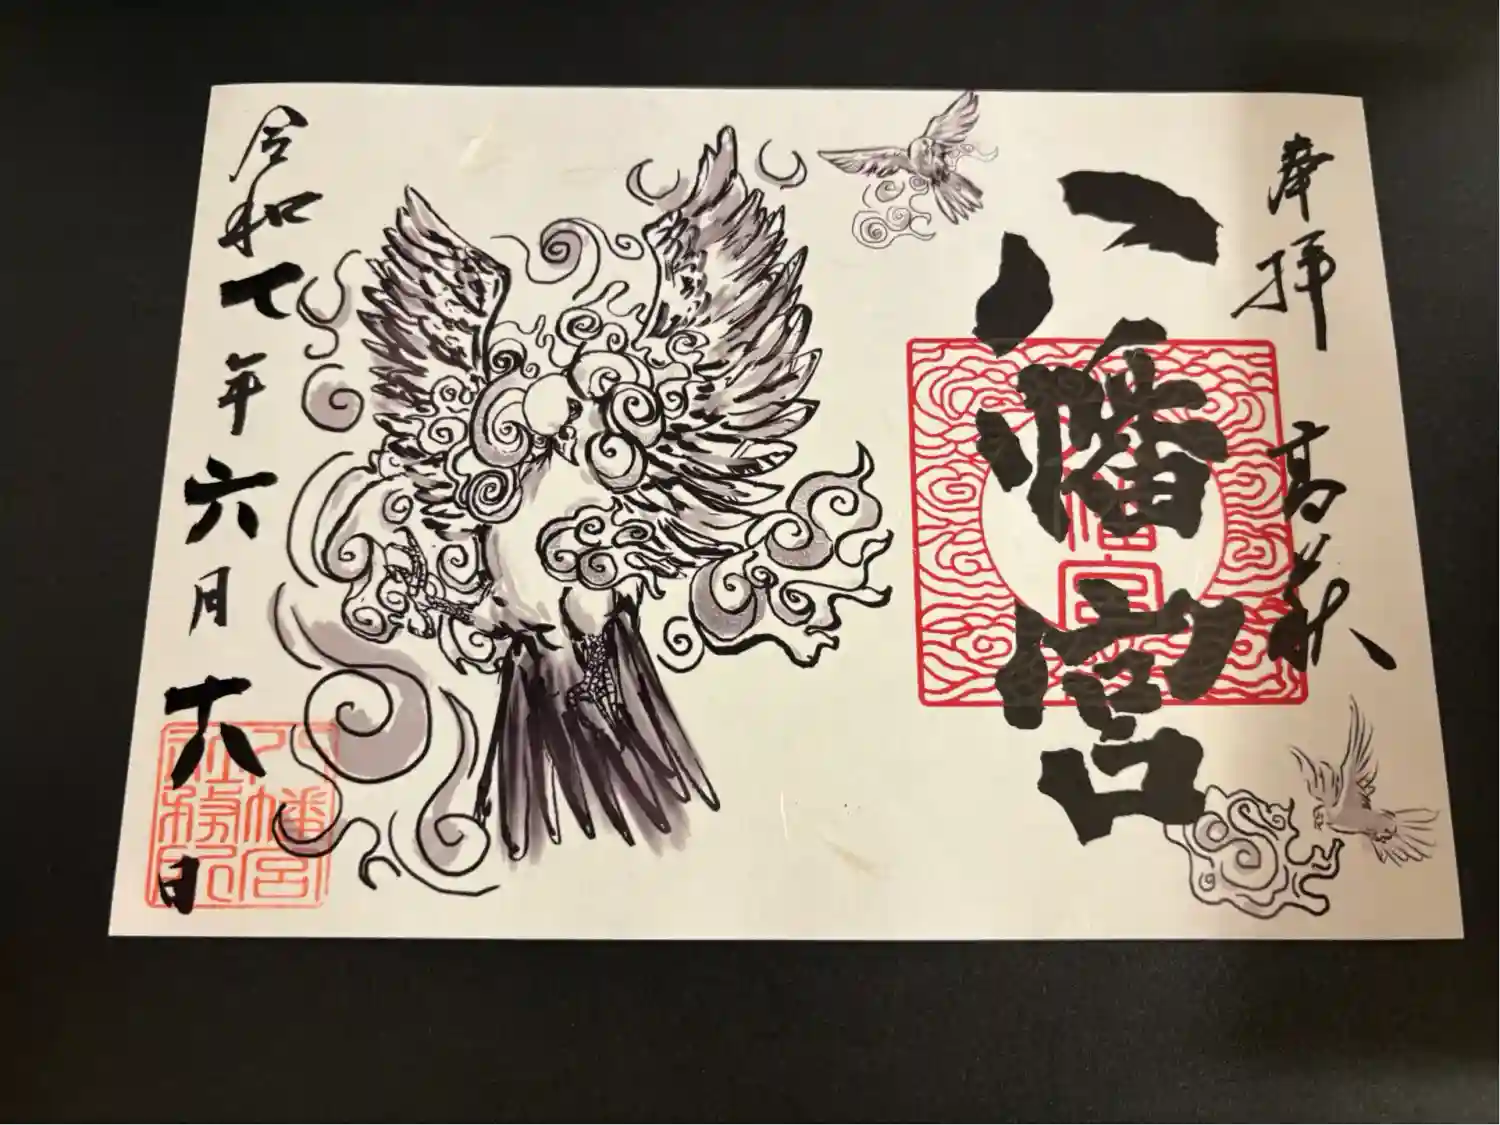 奉拝 高萩
八幡宮
令和七年六月十八日
八幡宮
社務所